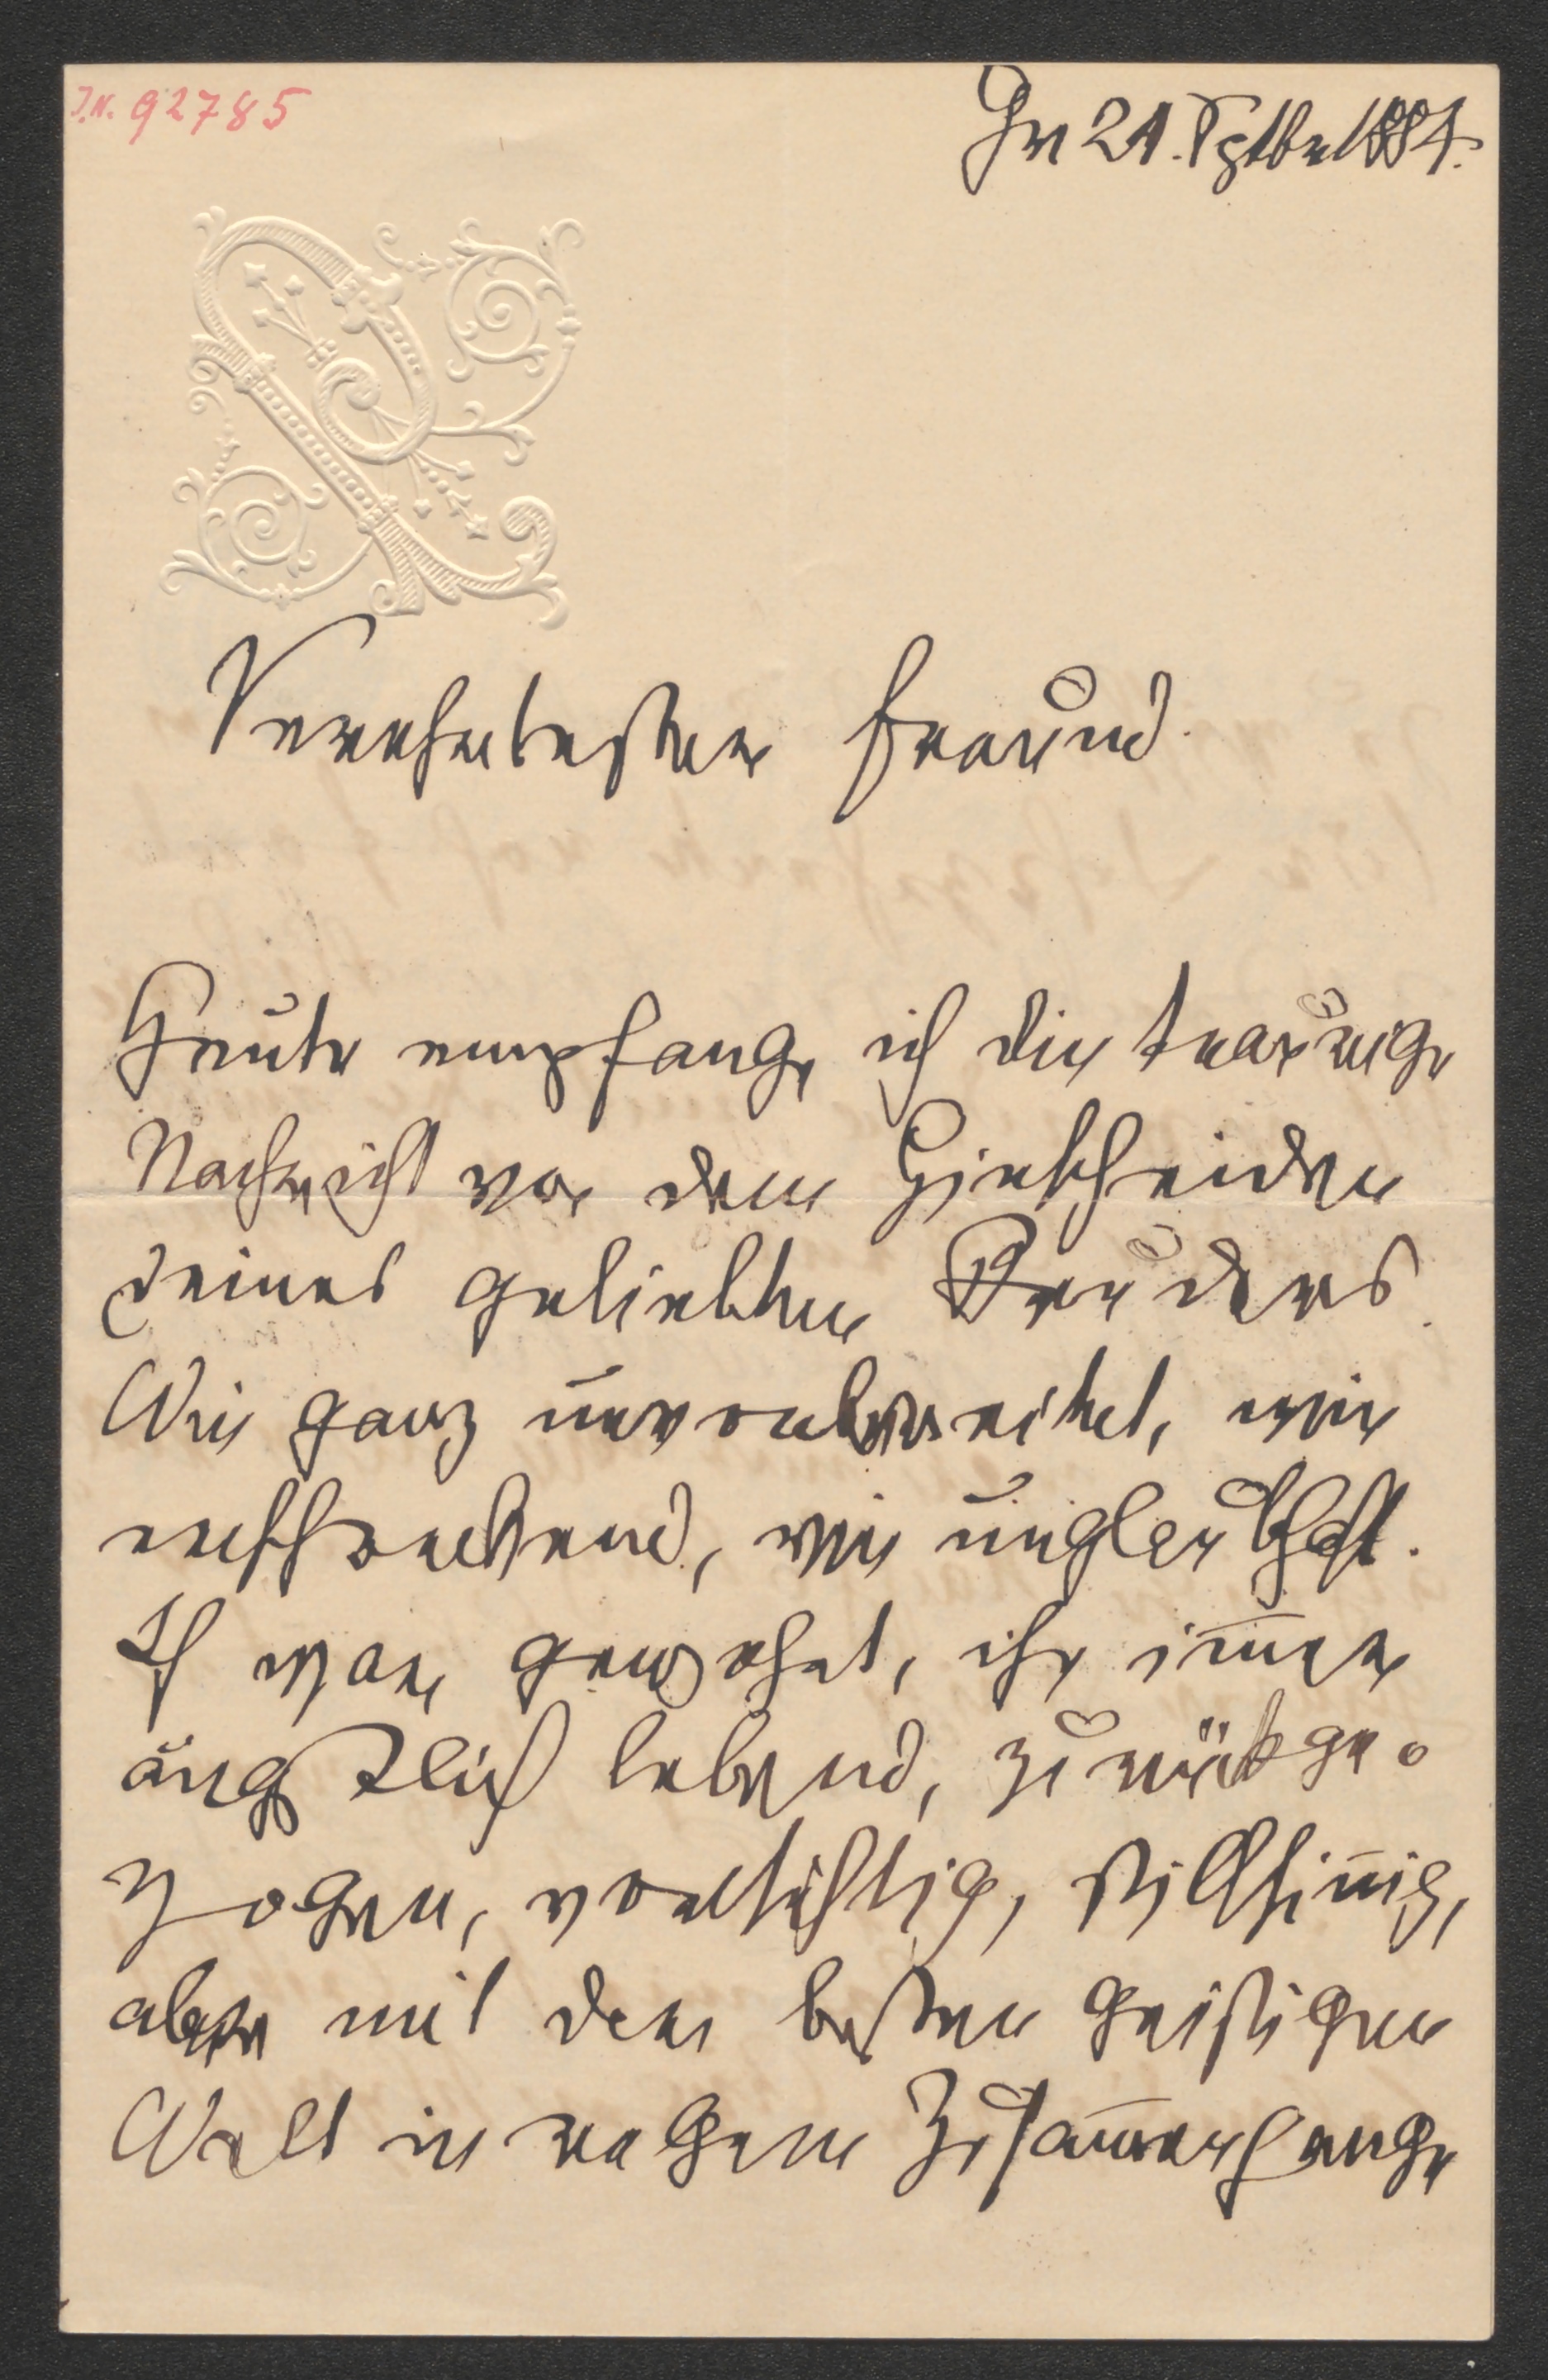 I.N. 92785
Gr 21. Sptbr 1884.
Verehrtester Freund.
Heute empfange ich die traurige
Nachricht von dem Hinscheiden
deines geliebten Bruders.
Wie ganz unvorbereitet, wie
erschreckend, wie unglaubhaft.
Ich war gewohnt, ihn immer
ängstlich lebend, zurückge-
zogen, vorsichtig, stillsinnig,
aber mit der besten geistigen
Welt in regem Zusammenhange